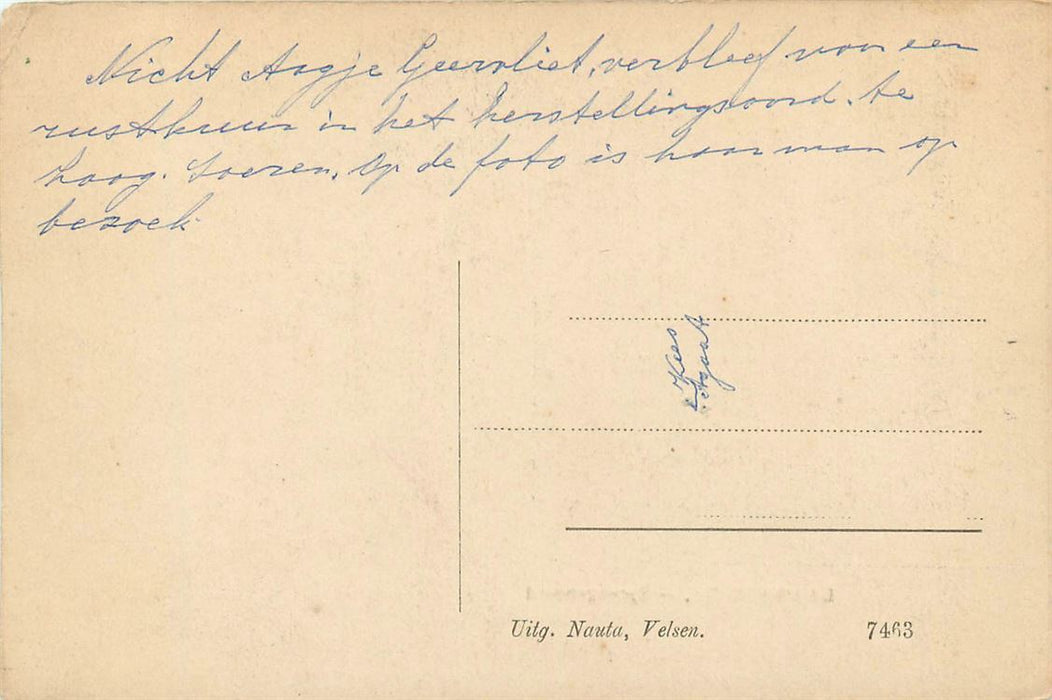 Nicht Aagje Geervliet, verbleef voor een
rustkuur in het herstellingsoord. te
Hoog. Soeren. Op de foto is haar man op
bezoek
Kees
Agaat
Uitg. Nauta, Velsen.
7463